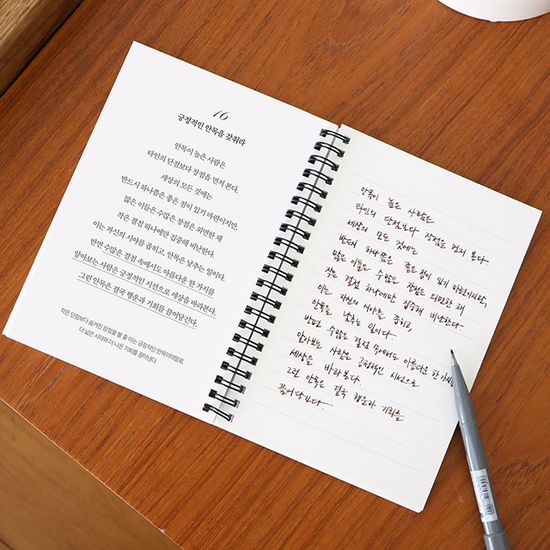 16
긍정적인 안목을 갖춰라
안목이 높은 사람은
타인의 단점보다 장점을 먼저 본다.
세상의 모든 것에는
반드시 하나쯤은 좋은 점이 있기 마련이지만,
많은 이들은 수많은 장점은 외면한 채
작은 결점 하나에만 집중해 비난한다.
이는 자신의 시야를 좁히고, 안목을 낮추는 일이다.
반면 수많은 결점 속에서도 아름다운 한 가지를
알아보는 사람은 긍정적인 시선으로 세상을 바라본다.
그런 안목은 결국 행운과 기회를 끌어당긴다.
작은 단점보다 숨겨진 장점을 볼 줄 아는 긍정적인 안목이야말로,
더 넓은 시야와 더 나은 기회를 끌어온다.
안목이 높은 사람은
타인의 단점보다 장점을 먼저 본다.
세상의 모든 것에는
반드시 하나쯤은 좋은 점이 있기 마련이지만,
많은 이들은 수많은 장점은 외면한 채
작은 결점 하나에만 집중해 비난한다.
이는 자신의 시야를 좁히고,
안목을 낮추는 일이다.
반면 수많은 결점 속에서도 아름다운 한 가지를
알아보는 사람은 긍정적인 시선으로
세상을 바라본다.
그런 안목은 결국 행운과 기회를
끌어당긴다.